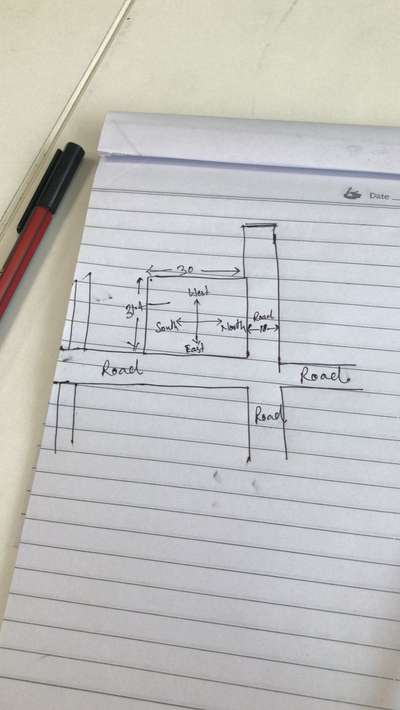 Date
30
West
Road
South North 18
East
Road Road
Road